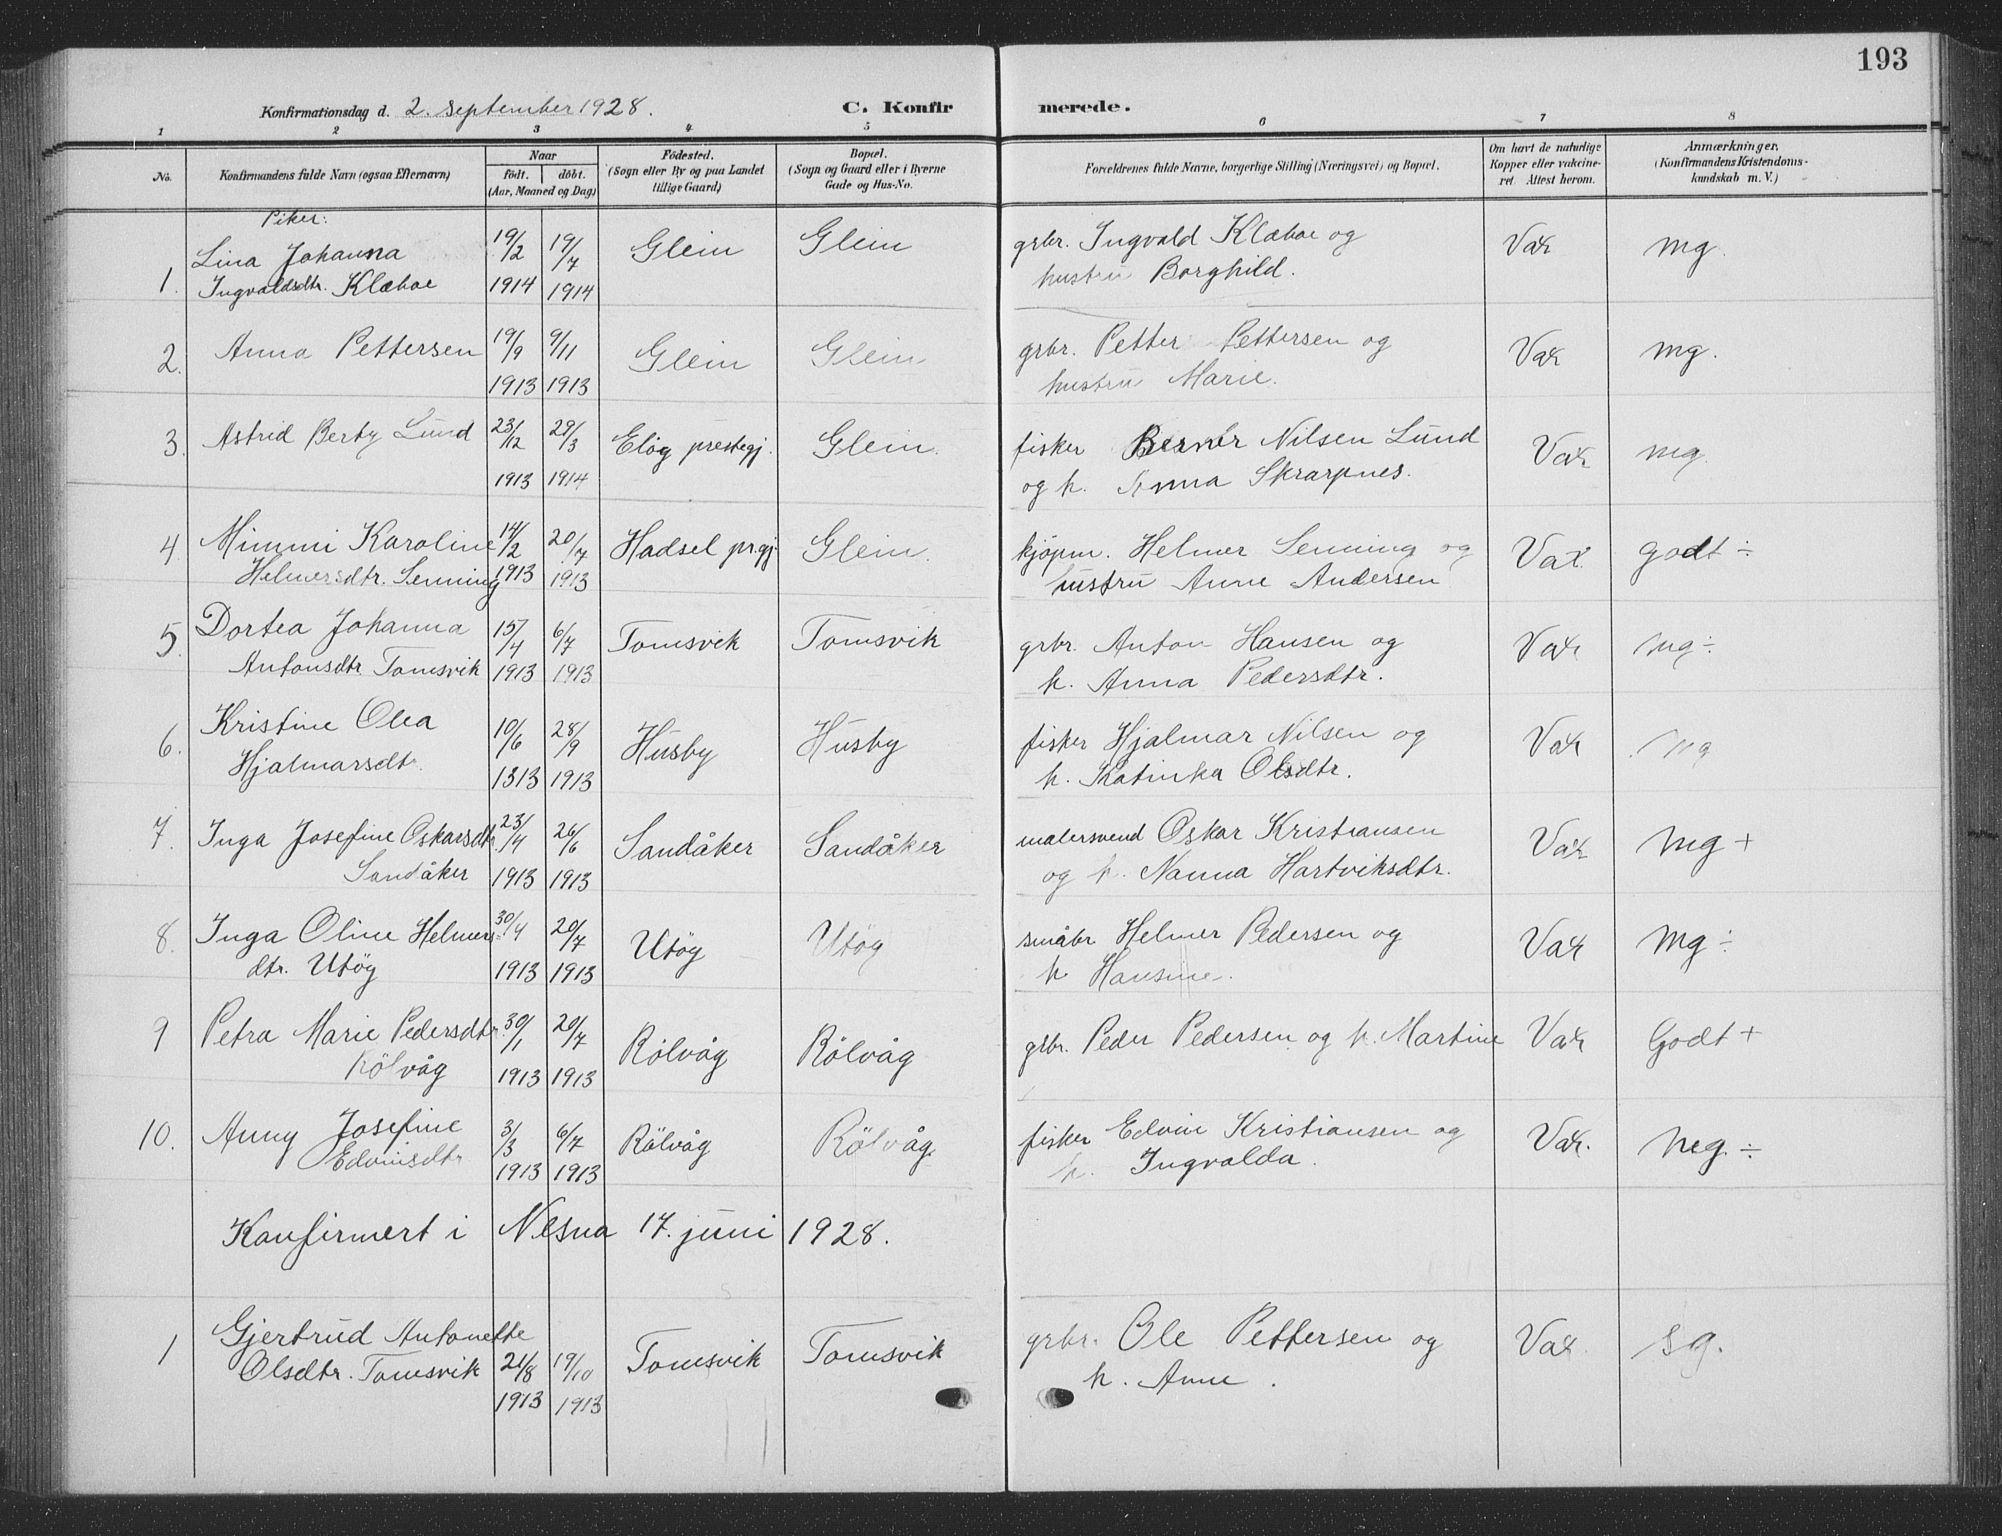 193
Konfirmationsdag d. 2. september 1928. C. Konfirmerede.
1 2 3 4 5 6 7 8
No. Konfirmandens fulde Navn (ogsaa Efternavn) Naar født. døbt. (Aar, Maaned og Dag) Fødested. (Sogn eller By og paa Landet tillige Gaard) Bopæl. (Sogn og Gaard eller i Byerne Gade og Hus-No. Forældrenes fulde Navne, borgerlige Stilling (Næringsvei) og Bopæl. Om havt de naturlige Kopper eller vakcineret. Attest herom. Anmærkninger. (Konfirmandens Kristendomskundskab m. V.)
Piker:
1. Lina Johanna 19/2 19/7 Glein Glein grbr. Ingvald Klæboe og Vax mg.
Ingvaldsdtr. Klæboe 1914 1914 hustru Borghild.
2. Anna Pettersen 19/9 9/11 Glein Glein grbr. Petter Pettersen og Vax mg.
1913 1913 hustru Marie.
3. Astrid Berty Lund 23/12 29/3 Elög prestegj. Glein. fisker Bernér Nilsen Lund Vax mg
1913 1914 og h. Anna Skrarpnes.
4. Mimmi Karoline 14/2 20/7 Hadsel pr.gj. Glein. kjöpm. Helmer Senning og Vax. godt ÷
Helmersdtr. Senning 1913 1913 hustru Anne Andersen
5. Dortea Johanna 15/4 6/7 Tomsvik Tomsvik grbr. Anton Hansen og Vax mg ÷
Antonsdtr. Tomsvik 1913 1913 h. Anna Pedersdtr.
6. Kristine Olea 10/6 28/9 Husby Husby fisker Hjalmar Nilsen og Vax mg
Hjalmarsdtr. 1313 1913 h. Katinka Olsdtr.
7. Inga Josefine Oskarsdtr. 23/4 26/6 Sandåker Sandåker malersvend Oskar Kristiansen Vax mg +
Sandåker 1913 1913 og h. Nanna Hartviksdtr.
8. Inga Oline Helmers- 30/4 20/7 Utög Utög småbr Helmer Pedersen og Vax mg ÷
dtr. Utög 1913 1913 h Hansine.
9 Petra Marie Pedersdtr. 30/1 20/7 Rölvåg Rölvåg grbr. Peder Pedersen og h. Martine Vax Godt +
Rölvåg 1913 1913
10. Anny Josefine 3/3 6/7 Rölvåg Rölvåg. fisker Edvin Kristiansen og Vax. meg. ÷
Edvinsdtr 1913 1913 h. Ingvalda.
Konfirmert i Nesna 17. juni 1928.
1 Gjertrud Antonette Tomsvik Tomsvik grbr. Ole Pettersen og Vax. sg.
Olsdtr. Tomsvik 21/8 19/10 h. Anne.
1913 1913